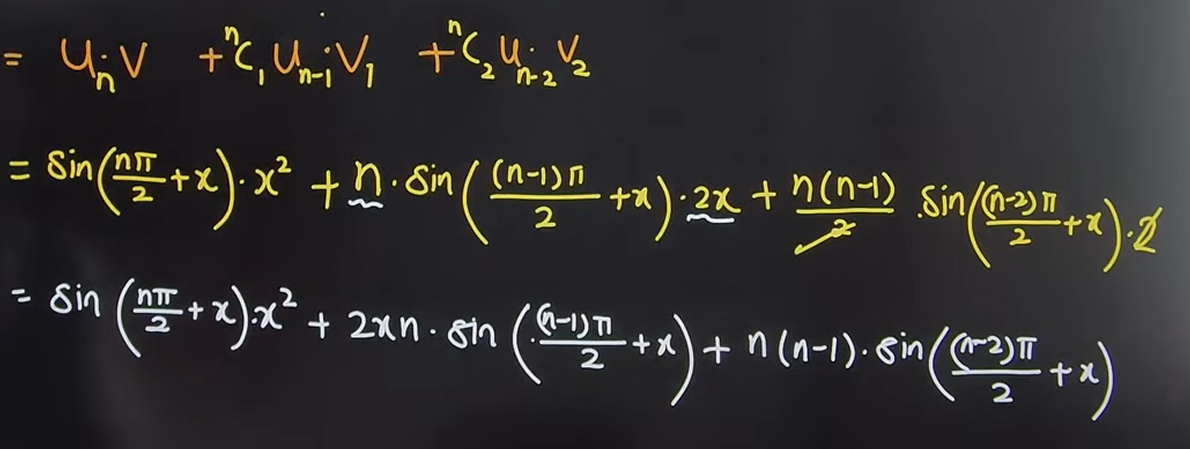 = Uₙ V + ⁿC₁ Uₙ₋₁ V₁ + ⁿC₂ Uₙ₋₂ V₂
= sin(nπ/2 + x)·x² + n·sin((n-1)π/2 + x)·2x + n(n-1)/2 ·sin((n-2)π/2 + x)·2
= sin(nπ/2 + x)·x² + 2xn·sin((n-1)π/2 + x) + n(n-1)·sin((n-2)π/2 + x)